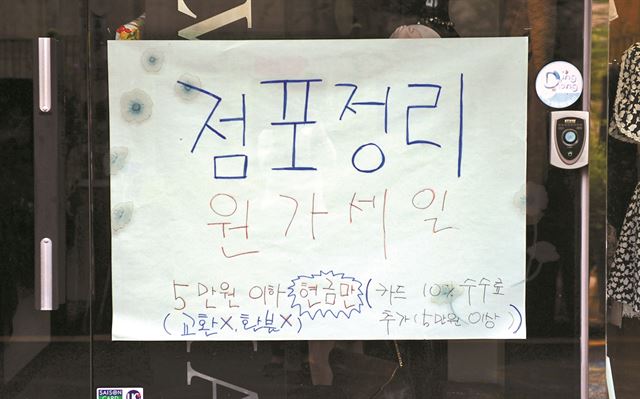 점포정리
원가세일
5만원 이하 현금만 (카드 10% 수수료
(교환X, 환불X) 추가 (5만원 이상))
Ding Dong
SAISON CARD